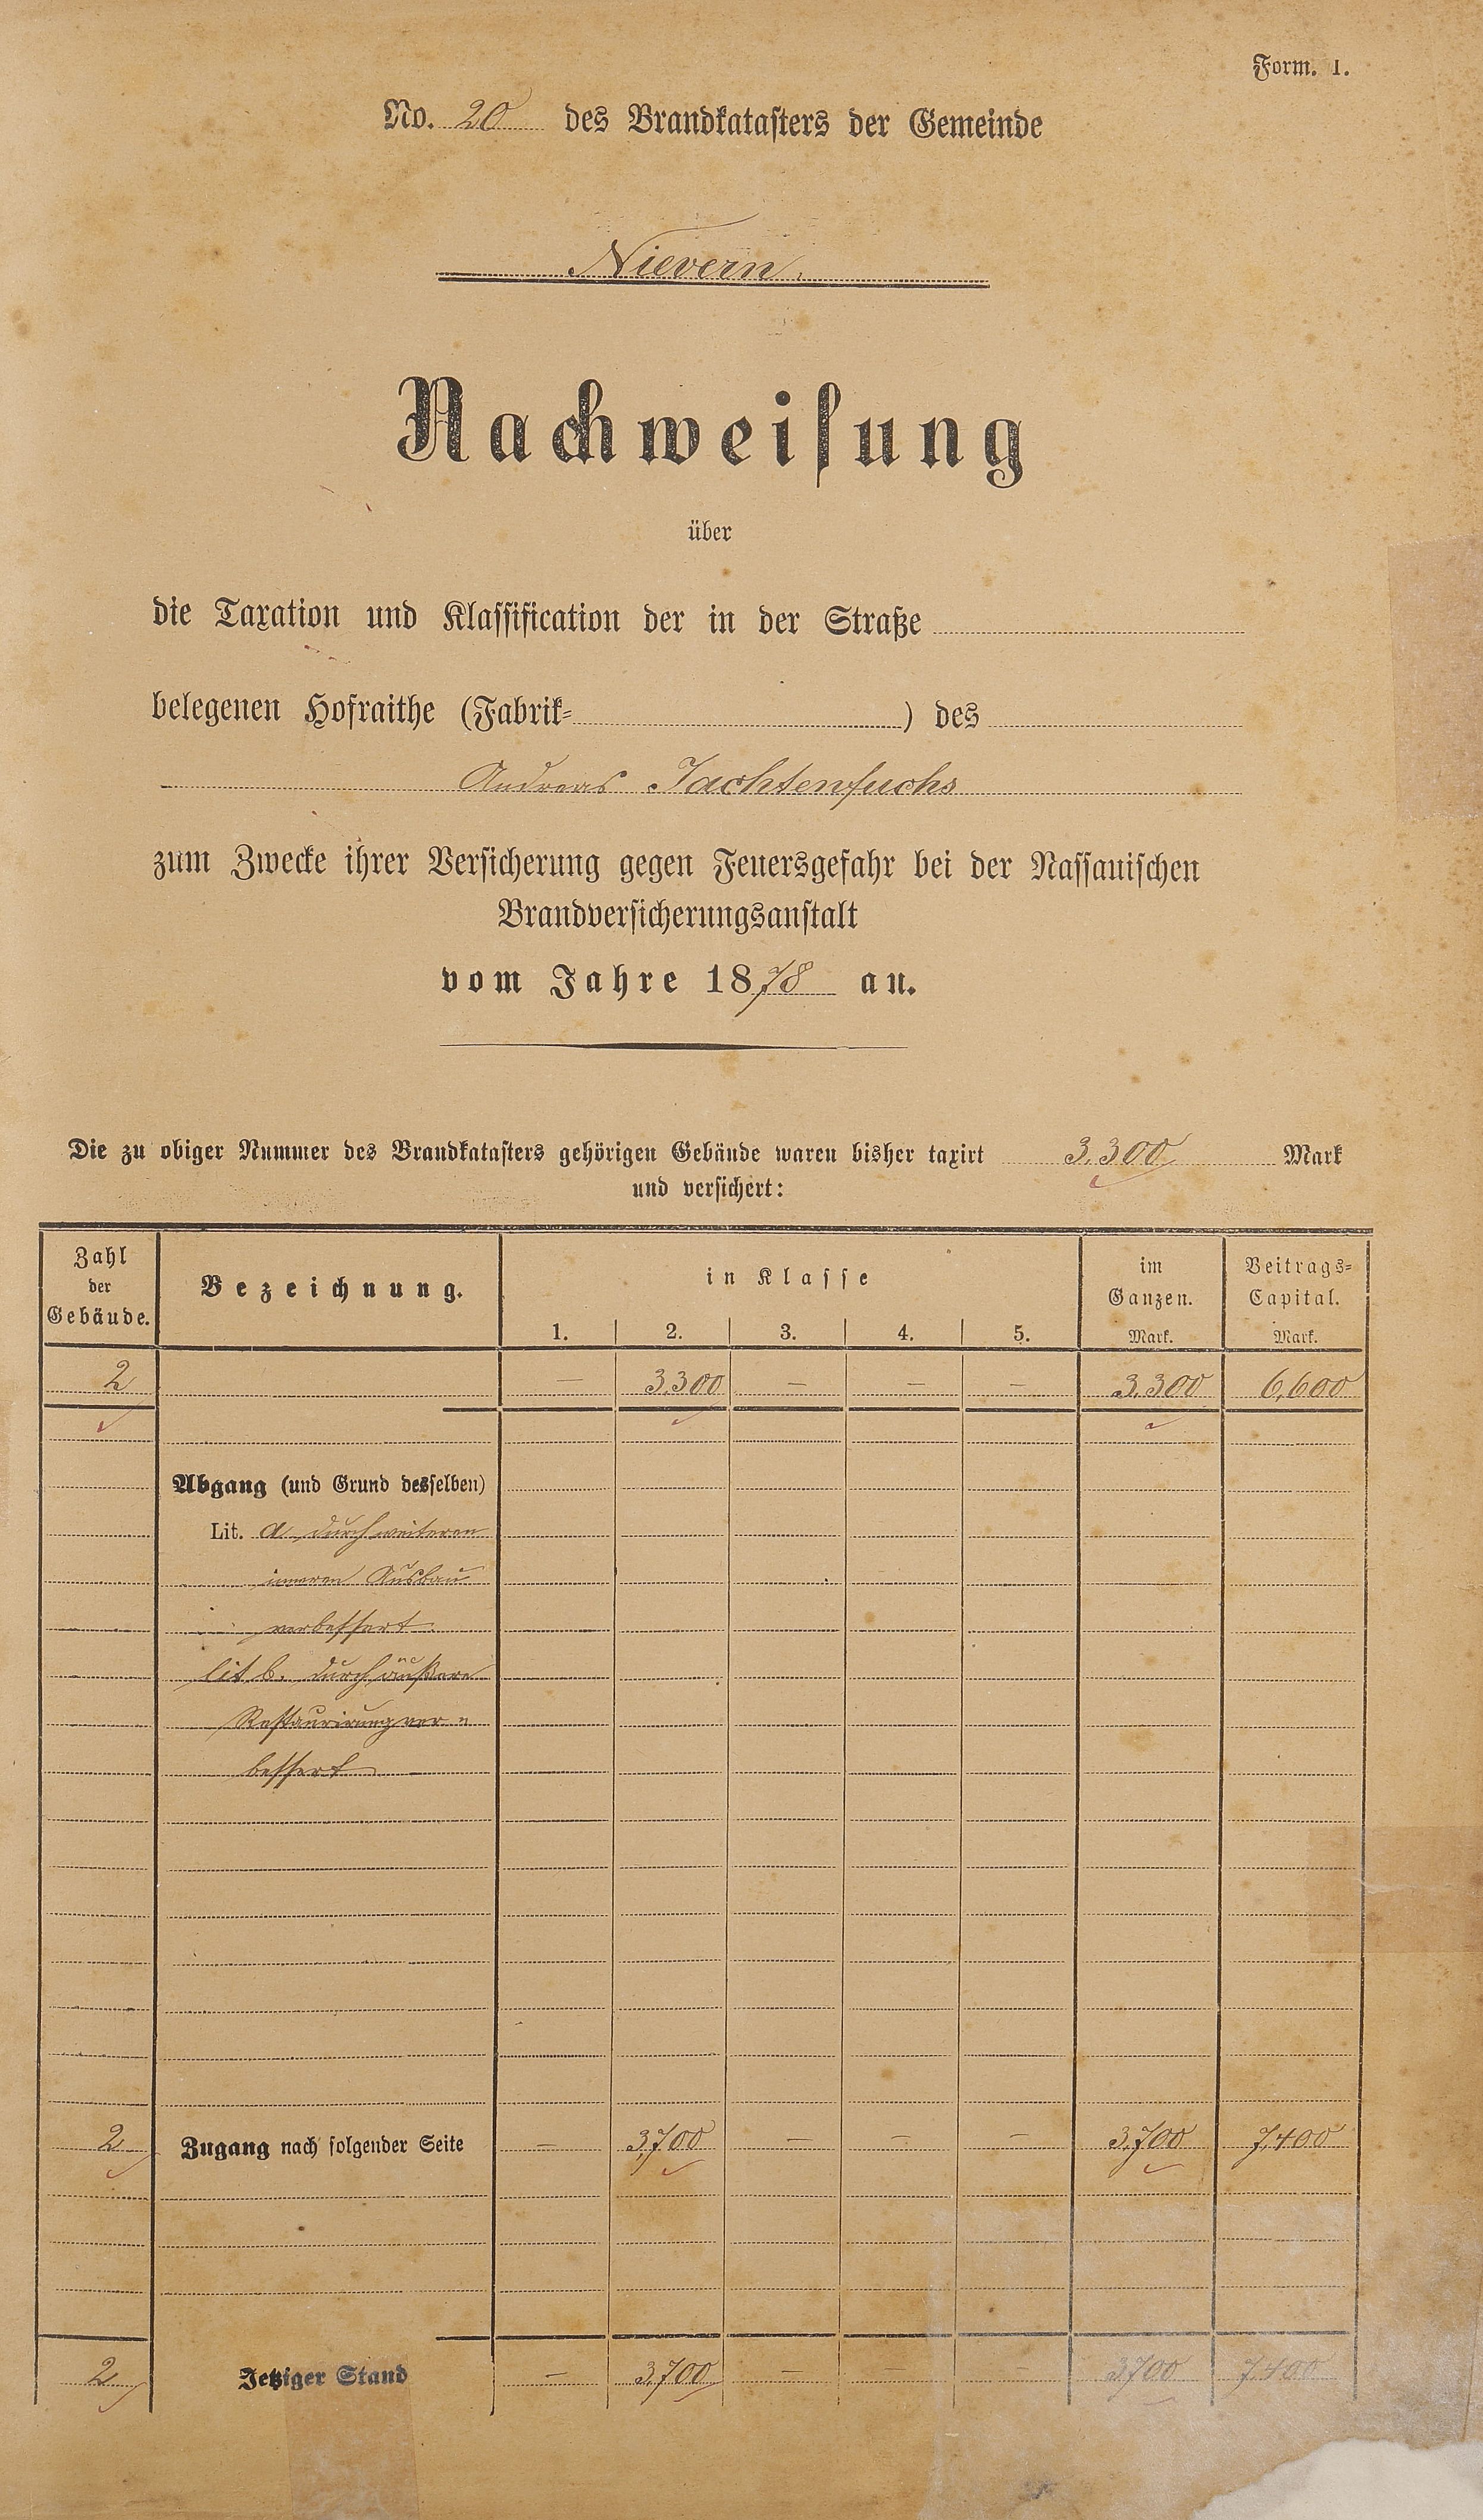 Form. 1.
No. 20 des Brandkatasters der Gemeinde
Nievern.
Nachweisung
über
die Taxation und Klassification der in der Straße
belegenen Hofraithe (Fabrik- ) des
Andreas Jachtenfuchs
zum Zwecke ihrer Versicherung gegen Feuersgefahr bei der Nassauischen
Brandversicherungsanstalt
vom Jahre 1878 an.
Die zu obiger Nummer des Brandkatasters gehörigen Gebäude waren bisher taxirt 3.300 Mark
und versichert:
Zahl der Gebäude. Bezeichnung. in Klasse im Ganzen. Beitrags-Capital.
1. 2. 3. 4. 5. Mark. Mark.
2 — 3.300 — — — 3.300 6,600
Abgang (und Grund desselben)
Lit. a durch weiteren
inneren Ausbau
verbessert.
lit b. durch äußere
Restaurirung ver-
bessert
2 Zugang nach folgender Seite — 3,700 — — — 3,700 7,400
2 Jetziger Stand — 3,700 — — — 3700 7,400